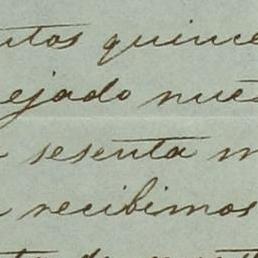 ntos quince
ejado nues
sesenta m
recibimos